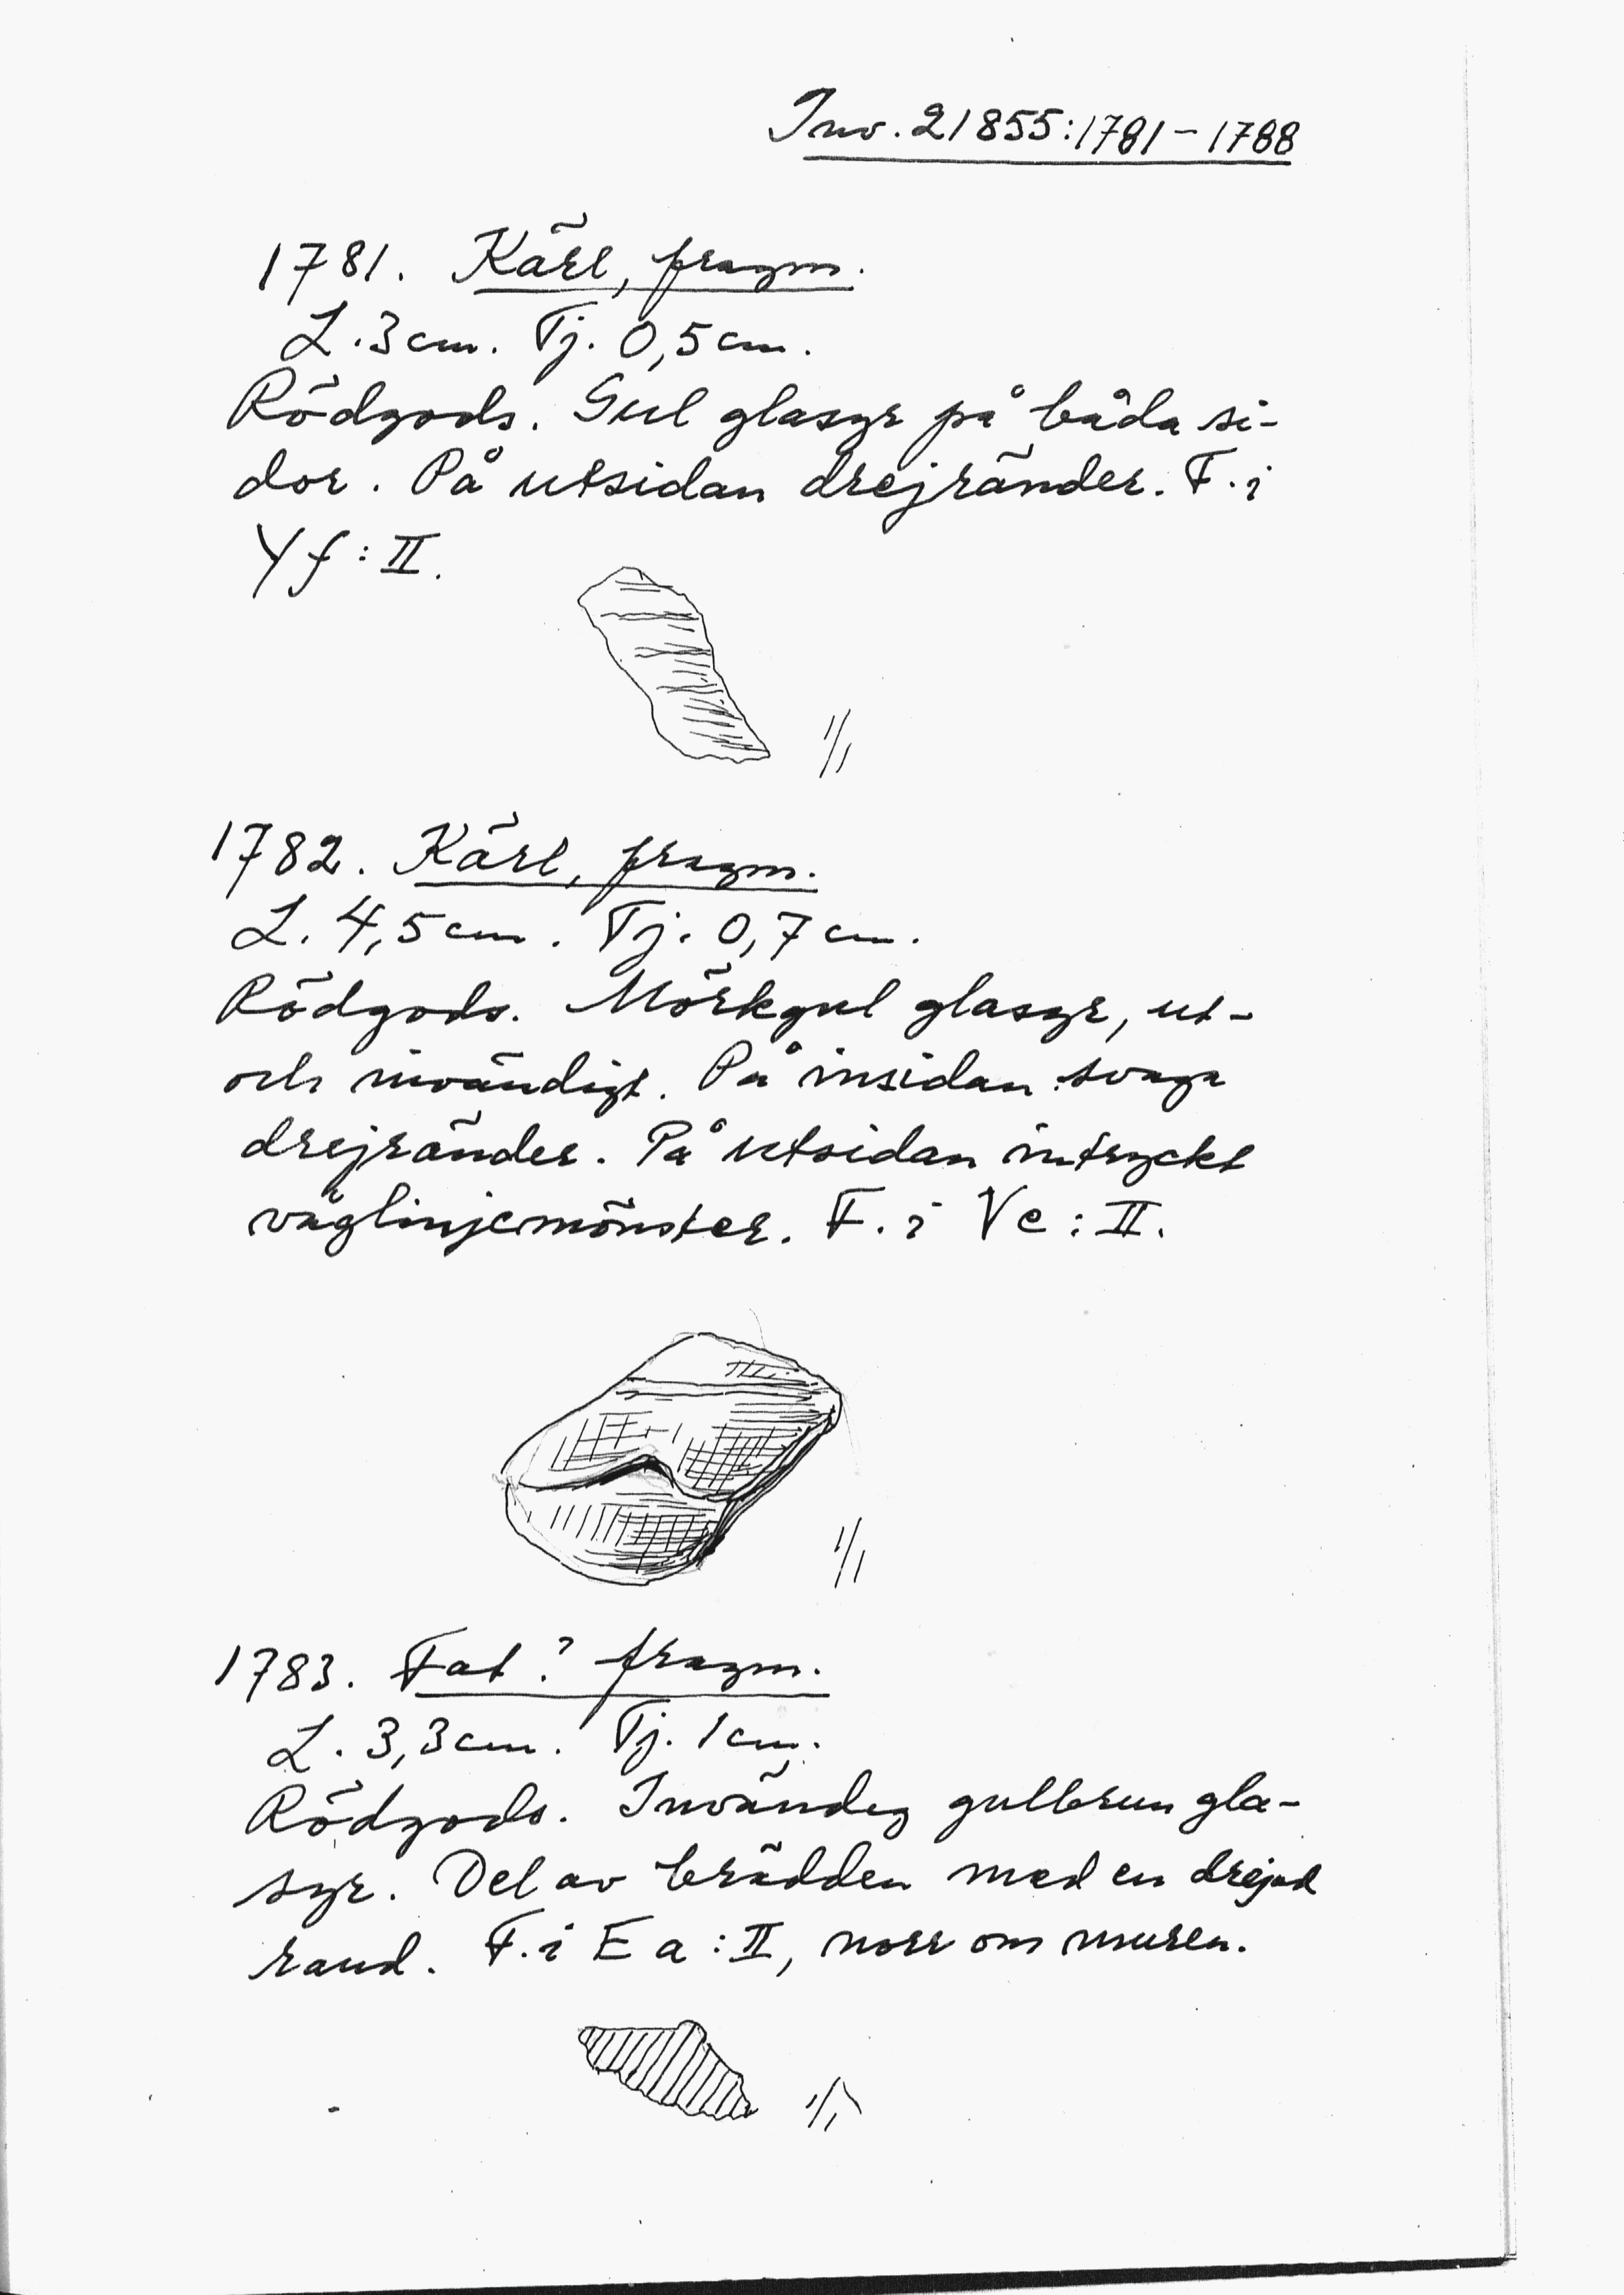 Inv. 21855:1781-1788
1781. Kärl, fragm.
L. 3 cm. Tj. 0,5 cm.
Rödgods. Gul glasyr på båda si-
dor. På utsidan drejränder. F. i
Yf:II.
1/1
1782. Kärl, fragm.
L. 4,5 cm. Tj. 0,7 cm.
Rödgods. Mörkgul glasyr, ut-
och invändigt. På insidan svaga
drejränder. På utsidan intryckt
våglinjemönster. F. i Ve:II.
1/1
1783. Fat? fragm.
L. 3,3 cm. Tj. 1 cm.
Rödgods. Invändig gulbrun gla-
syr. Del av brädden med en drejad
rand. F. i Ea:II, norr om muren.
1/1